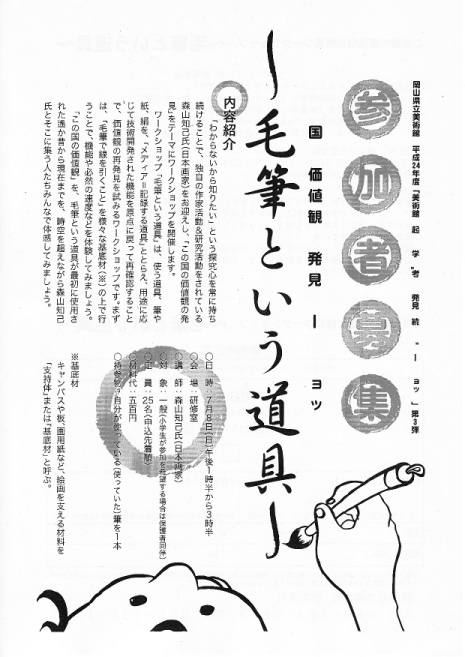 岡山県立美術館 平成24年度「美術館 起 学 者 発見 続 ー ョッ 」第3弾
参加者募集
国 価値観 発見 ー ョッ
〜毛筆という道具〜
内容紹介
「わからないから知りたい」という探究心を常に持ち
続けることで、独自の作家活動&研究活動をされている
森山知己氏(日本画家)をお迎えし、「この国の価値観の発
見」をテーマにワークショップを開催します。
ワークショップ「毛筆という道具」は、使う道具、筆や
紙、絹を、“メディア=記録する道具”ととらえ、用途に応
じて技術開発された機能を原点に戻って再確認すること
で、価値観の再発見を試みるワークショップです。まず
は、「毛筆で線を引くこと」を様々な基底材(※)の上で行
うことで、機能や必然の速度などを体験してみましょう。
「この国の価値観」を、毛筆という道具が最初に使用さ
れた遙か昔から現在までを、時空を超えながら森山知己
氏とそこに集う人たちみんなで体感してみましょう。
○日 時:7月8日(日)午後1時半から3時半
○会 場:研修室
○講 師:森山知己氏(日本画家)
○対 象:一般(小学生が参加を希望する場合は保護者同伴)
○定 員:25名(申込先着順)
○材料代:五百円
○持参物:自分が使っている(使っていた)筆を1本
※基底材
キャンバスや板、画用紙など、絵画を支える材料を
「支持体」または「基底材」と呼ぶ。